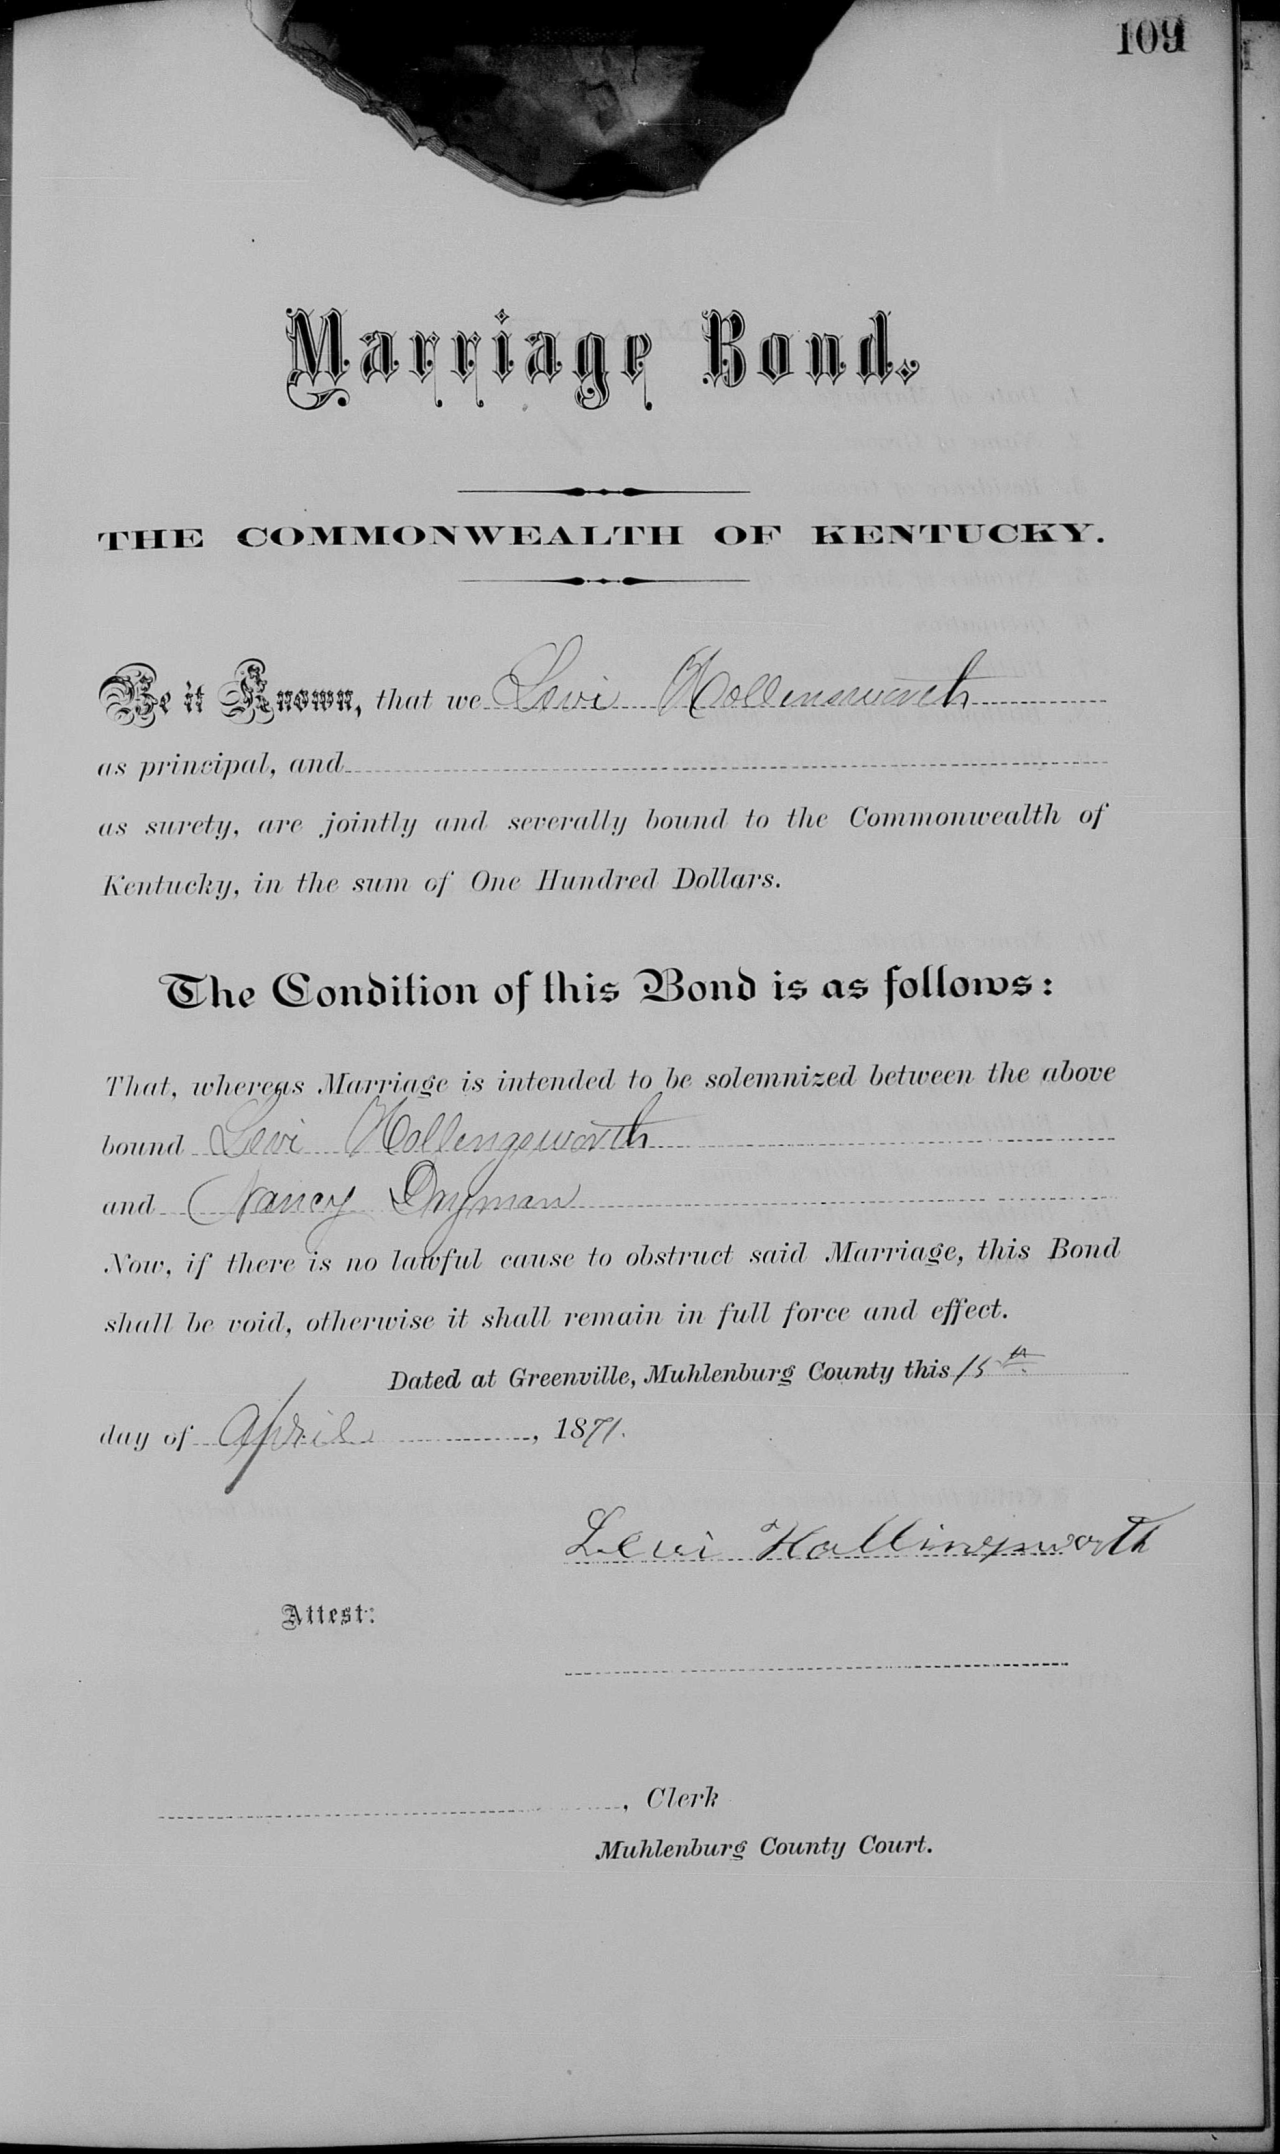 109
Marriage Bond.
THE COMMONWEALTH OF KENTUCKY.
Be it Known, that we Levi Hollensworth
as principal, and
as surety, are jointly and severally bound to the Commonwealth of
Kentucky, in the sum of One Hundred Dollars.
The Condition of this Bond is as follows:
That, whereas Marriage is intended to be solemnized between the above
bound Levi Hollengsworth
and Nancy Dryman
Now, if there is no lawful cause to obstruct said Marriage, this Bond
shall be void, otherwise it shall remain in full force and effect.
Dated at Greenville, Muhlenburg County this 15th
day of April, 1871.
Levi Hollingsworth
Attest:
, Clerk
Muhlenburg County Court.